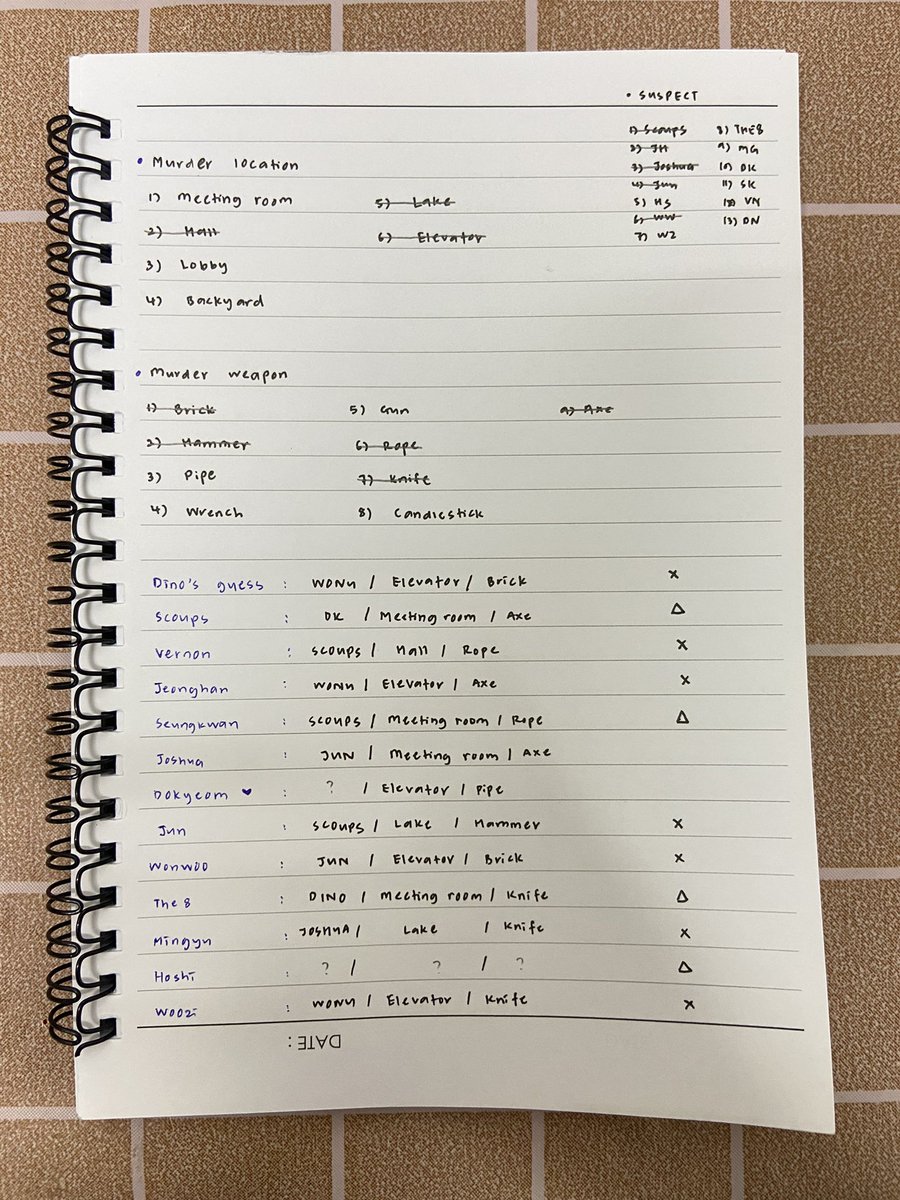 • SUSPECT
1) Scoups 8) THE8
2) JH 9) MG
• Murder location
3) Joshua 10) DK
4) Jun 11) SK
1) Meeting room 5) Lake
5) HS 12) VN
6) WW 13) DN
2) Hall 6) Elevator
7) WZ
3) Lobby
4) Backyard
• Murder weapon
1) Brick 5) Gun 9) Axe
2) Hammer 6) Rope
3) Pipe 7) Knife
4) Wrench 8) Candlestick
Dino's guess : WONU / Elevator / Brick x
Scoups : DK / Meeting room / Axe △
Vernon : SCOUPS / Hall / Rope x
Jeonghan : WONU / Elevator / Axe x
Seungkwan : SCOUPS / Meeting room / Rope △
Joshua : JUN / Meeting room / Axe
Dokyeom ♥ : ? / Elevator / Pipe
Jun : SCOUPS / Lake / Hammer x
Wonwoo : JUN / Elevator / Brick x
The 8 : DINO / Meeting room / Knife △
Mingyu : JOSHUA / Lake / Knife x
Hoshi : ? / ? / ? △
Woozi : WONU / Elevator / Knife x
DATE :